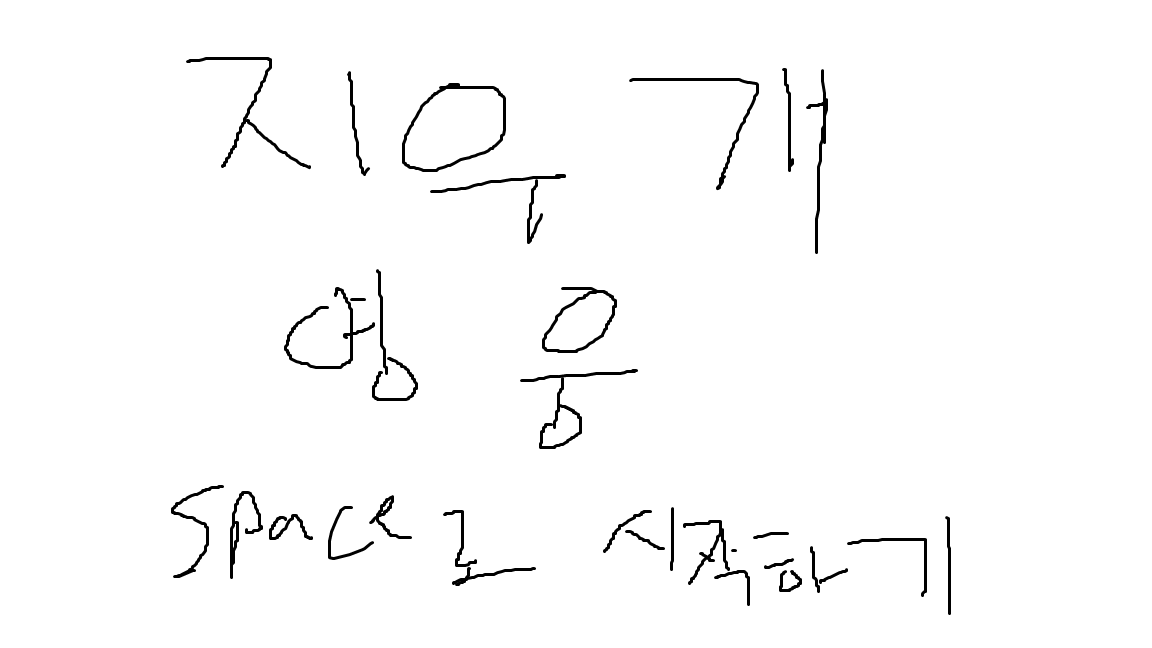 지우개
영웅
space로 시작하기